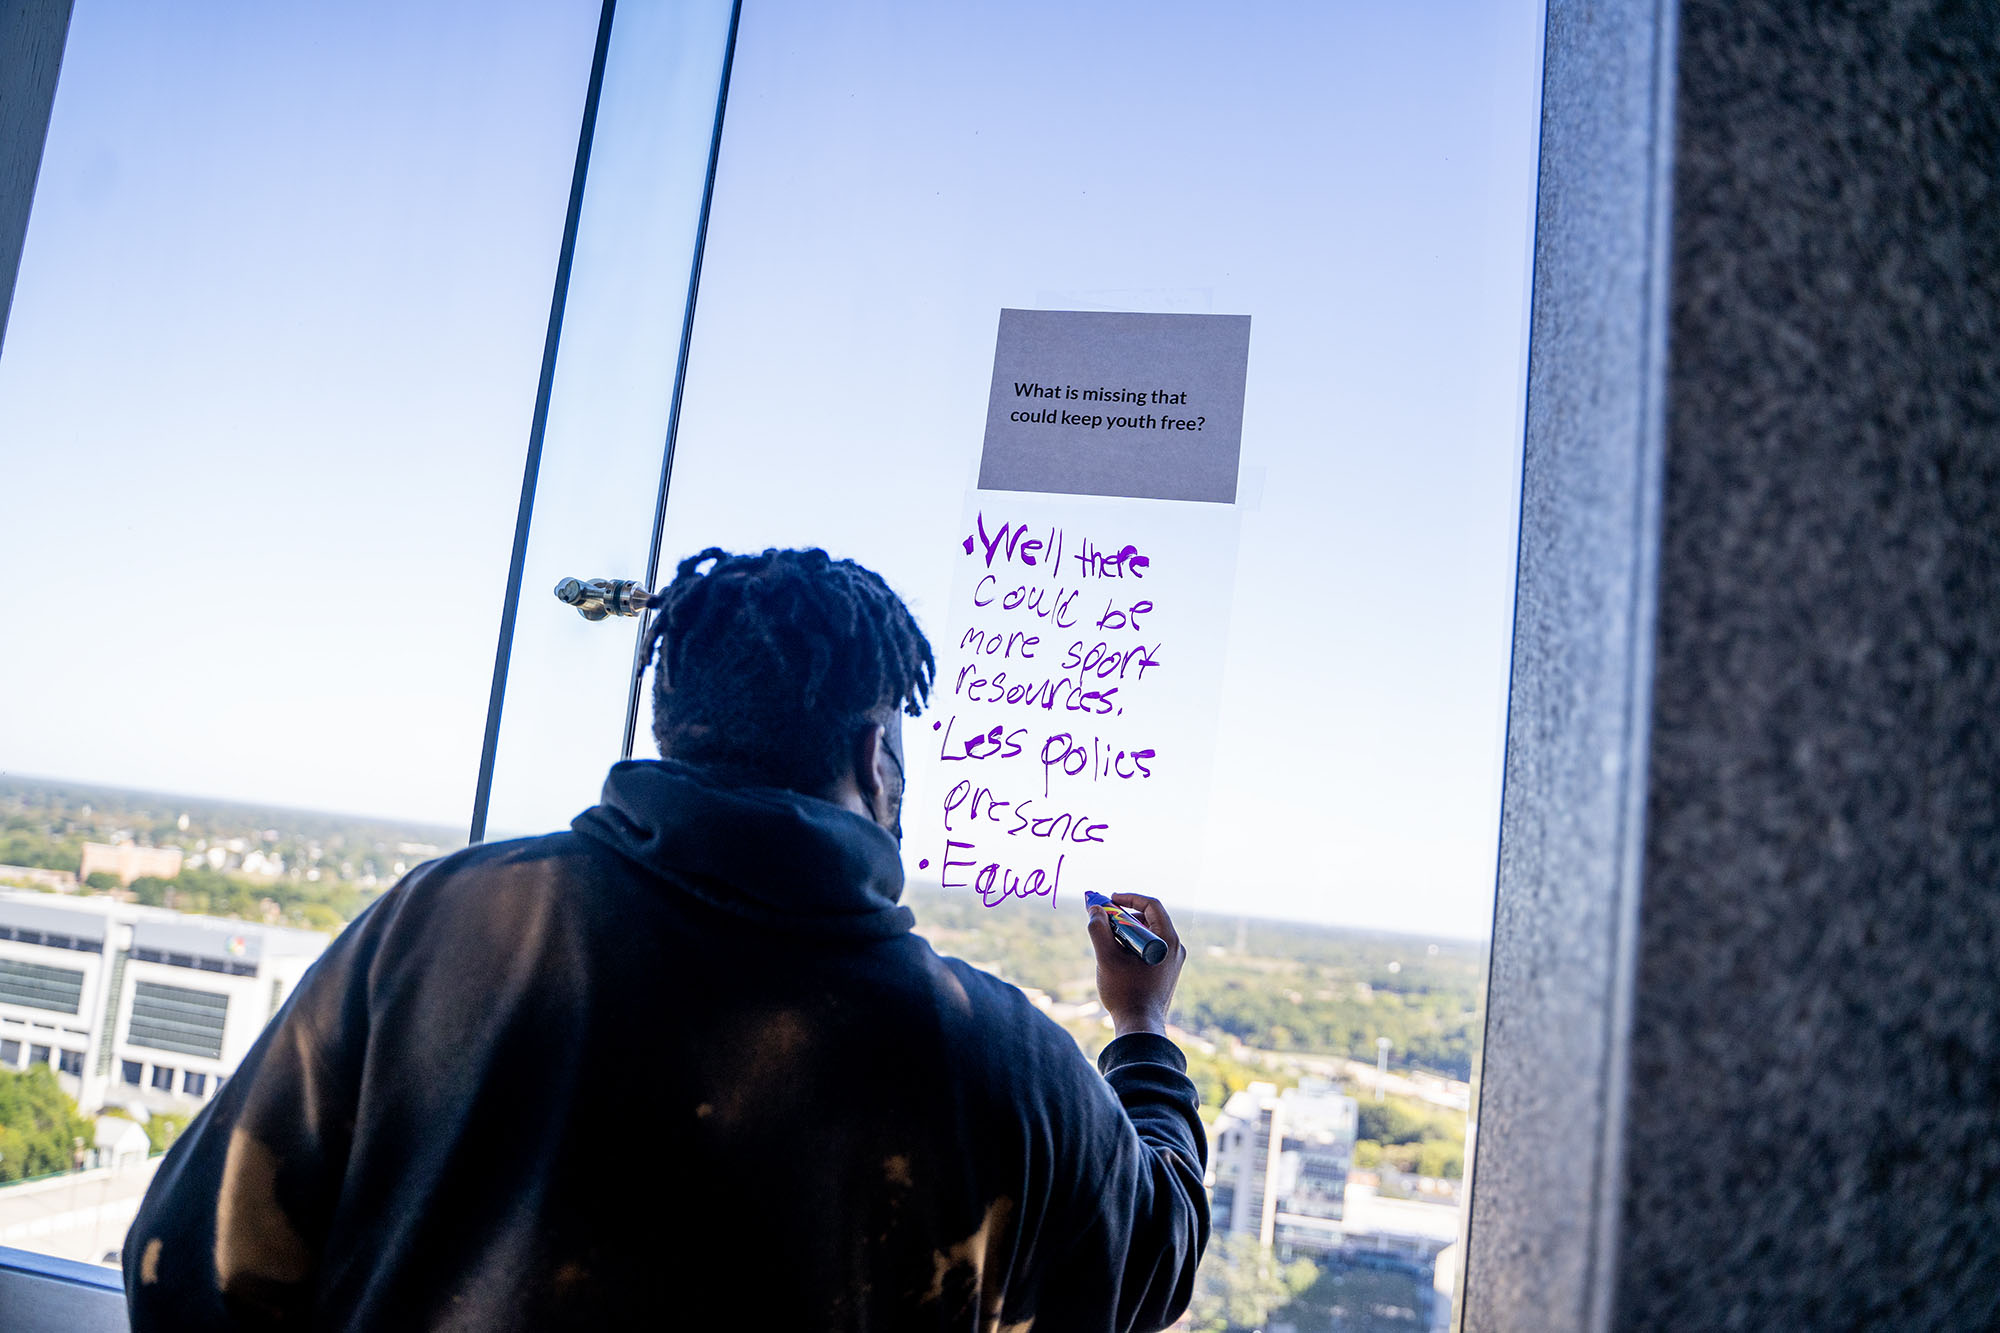 What is missing that
could keep youth free?
• Well there
could be
more sport
resources.
• Less police
presence
• Equal